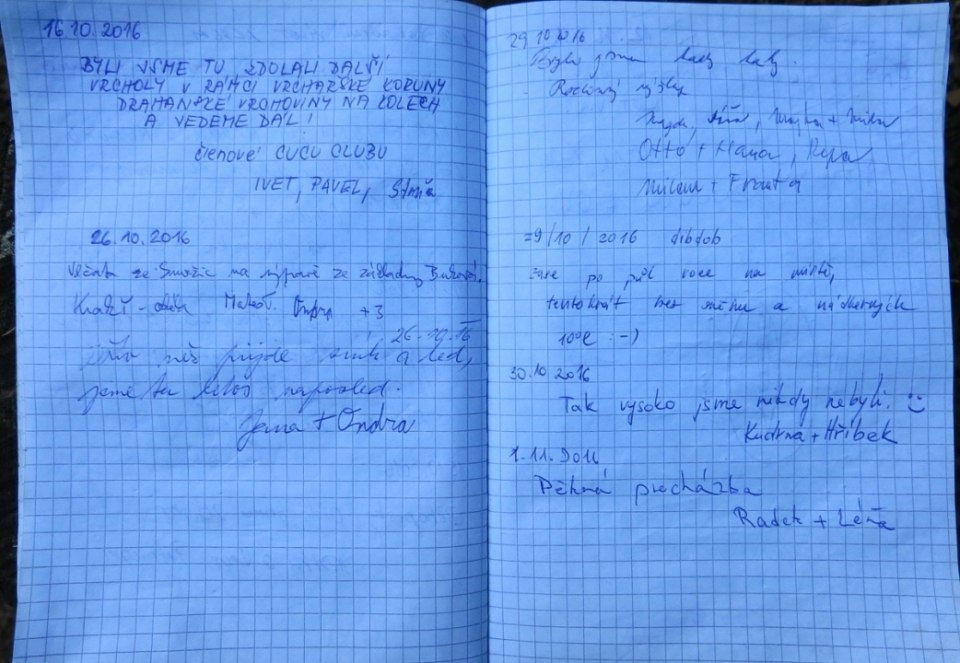 16.10.2016
BYLI JSME TU ZDOLALI DALŠÍ
VRCHOLY V RÁMCI VRCHAŘSKÉ KORUNY
DRAHANSKÉ VRCHOVINY NA KOLECH
A JEDEME DÁL!
ČLENOVÉ CUCU CLUBU
IVET, PAVEL,
26.10.2016
ze na výpravě ze základny
+3
26.10.16
Dřív než přijde sníh a led,
jsme tu letos naposled.
Jana + Ondra
29.10.2016
jsme tady
Rodinný výšlap
Otto + Hana,
Milena + Franta
29/10/2016 dibdob
Zase po půl roce na místě,
tentokrát bez sněhu a nádherných
10°C :-)
30.10.2016
Tak vysoko jsme nikdy nebyli.
Kudrna + Hříbek
1.11.2016
Pěkná procházka
Radek + Léňa